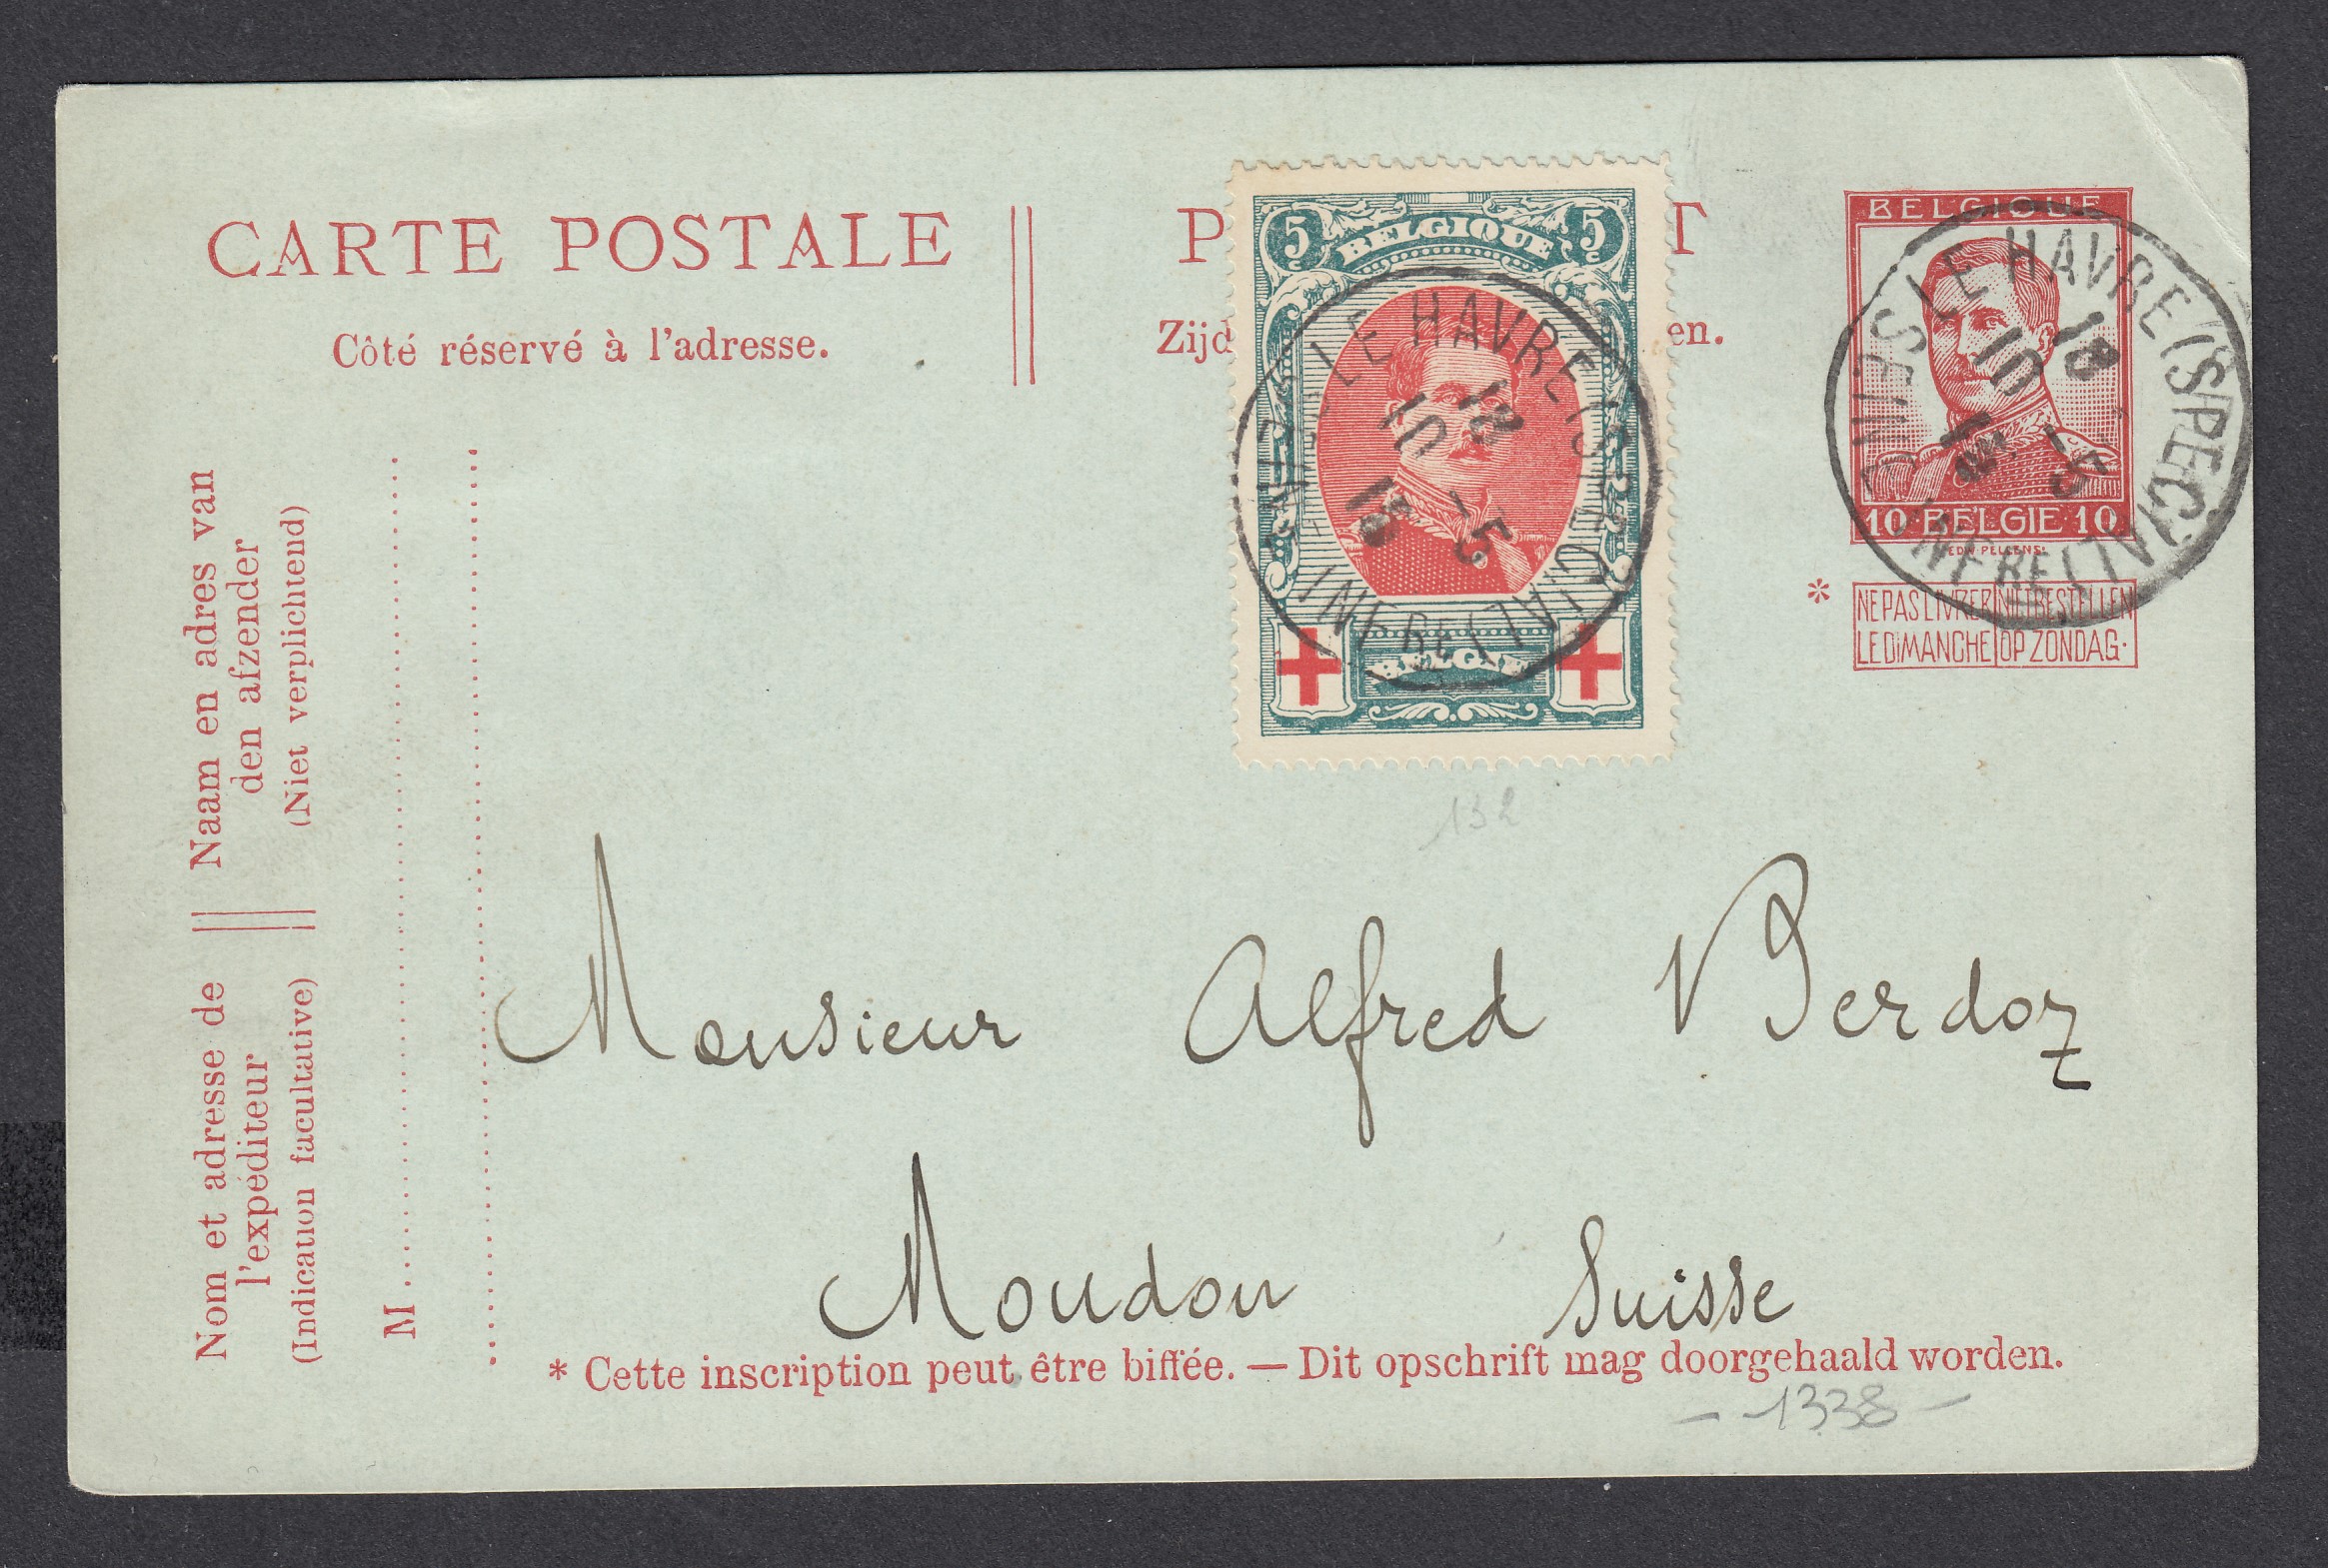 CARTE POSTALE
Côté réservé à l'adresse.
P T
Zijd en.
5 BELGIQUE 5
BELGIE
LE HAVRE (SPECIAL)
SEINE INFRE
18 -5
10
15
BELGIQUE
10·BELGIE·10
EDW·PELLENS·
LE HAVRE (SPECIAL)
SEINE INFRE
18 -5
10
15
* NE PAS LIVRER NIET BESTELLEN
LE DIMANCHE OP ZONDAG·
Naam en adres van
den afzender
(Niet verplichtend)
Nom et adresse de
l'expéditeur
(Indication facultative)
M
132
Monsieur Alfred Berdoz
Moudon Suisse
* Cette inscription peut être biffée. — Dit opschrift mag doorgehaald worden.
– 1338 –